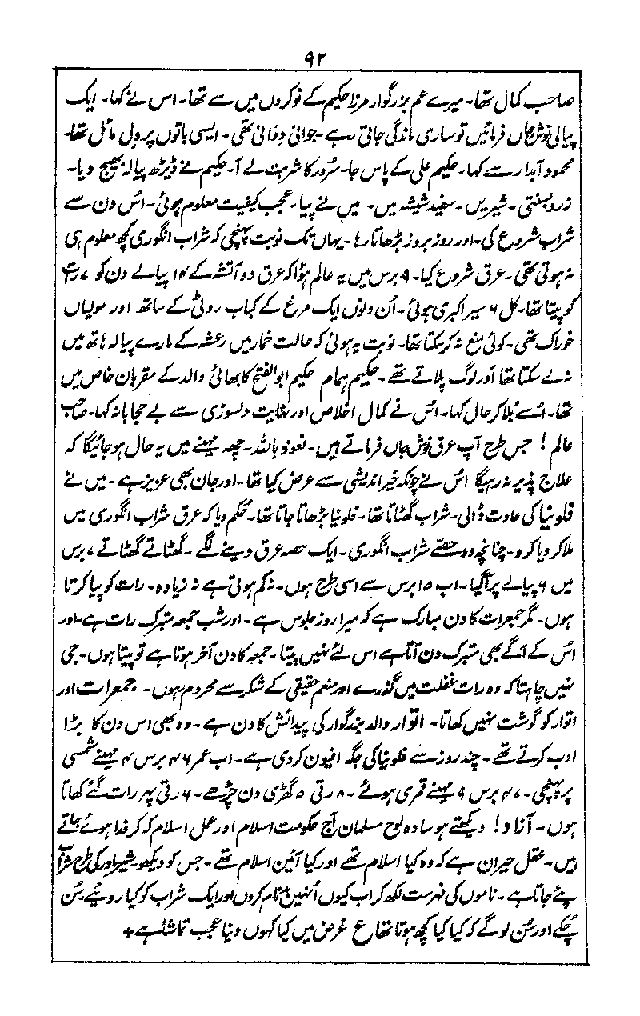 ۹۲
صاحب کمال تھا۔ میرے عم بزرگوار مرزا حکیم کے نوکروں میں سے تھا۔ اس نے کہا۔ ایک
پیالی نوش جاں فرمائیں تو ساری ماندگی جاتی رہے۔ جوانی دوانی تھی۔ ایسی باتوں پر دل مائل تھا۔
محمود آبدار سے کہا۔ حکیم علی کے پاس جا۔ سرور کا شربت لے آ۔ حکیم نے ڈیڑھ پیالہ بھیج دیا۔
زرد بسنتی۔ شیریں۔ سفید شیشہ میں۔ میں نے پیا۔ عجب کیفیت معلوم ہوئی۔ اُس دن سے
شراب شروع کی۔ اور روز بروز بڑھاتا رہا۔ یہاں تک نوبت پہنچی کہ شراب انگوری کچھ معلوم ہی
نہ ہوتی تھی۔ عرق شروع کیا۔ ۹ برس میں یہ عالم ہوا کہ عرق دو آتشہ کے ۱۴ پیالے دن کو ۷ رات
کو پیتا تھا۔ کل ۶ سیر اکبری ہوئی۔ اُن دنوں ایک مرغ کے کباب روٹی کے ساتھ اور مولیاں
خوراک تھی۔ کوئی منع نہ کر سکتا تھا۔ نوبت یہ ہوئی کہ حالت خمار میں رعشہ کے مارے پیالہ ہاتھ میں
نہ لے سکتا تھا اور لوگ پلاتے تھے۔ حکیم ہمام حکیم ابوالفتح کا بھائی والد کے مقربان خاص میں
تھا۔ اُسے بلا کر حال کہا۔ اُس نے کمال اخلاص اور نہایت دلسوزی سے بے حجابانہ کہا۔ صاحب
عالم! جس طرح آپ عرق نوش جاں فرماتے ہیں۔ نعوذ باللہ۔ چھہ مہینے میں یہ حال ہو جائیگا کہ
علاج پذیر نہ رہیگا اُس نے چونکہ خیر اندیشی سے عرض کیا تھا۔ اور جان بھی عزیز ہے۔ میں نے
فلونیا کی عادت ڈالی۔ شراب گھٹاتا تھا۔ فلونیا بڑھاتا جاتا تھا۔ حکم دیا کہ عرق شراب انگوری میں
ملا کر دیا کرو۔ چنانچہ دو حصے شراب انگوری۔ ایک حصہ عرق دینے لگے۔ گھٹاتے گھٹاتے ۷ برس
میں ۶ پیالے پر آگیا۔ اب ۱۵ برس سے اسی طرح ہوں۔ نہ کم ہوتی ہے نہ زیادہ۔ رات کو پیا کرتا
ہوں۔ مگر جمعرات کا دن مبارک ہے کہ میرا روز جلوس ہے۔ اور شب جمعہ متبرک رات ہے۔ اور
اُس کے آگے بھی متبرک دن آتا ہے اس لئے نہیں پیتا۔ جمعہ کا دن آخر ہوتا ہے تو پیتا ہوں۔ جی
نہیں چاہتا کہ وہ رات غفلت میں گذرے اور منعم حقیقی کے شکر سے محروم ہوں۔ جمعرات اور
اتوار کو گوشت نہیں کھاتا۔ اتوار والد بزرگوار کی پیدائش کا دن ہے۔ وہ بھی اس دن کا بڑا
ادب کرتے تھے۔ چند روز سے فلونیا کی جگہ افیون کر دی ہے۔ اب عمر ۴۶ برس ۴ مہینے شمسی
پر پہنچی۔ ۴۷ برس ۹ مہینے قمری ہوئے۔ ۸ رتی ۵ گھڑی دن چڑھے۔ ۶ رتی پہر رات گئے کھاتا
ہوں۔ آزاد! دیکھتے ہو سادہ لوح مسلمان آج حکومت اسلام اور عمل اسلام کہہ کر فدا ہوئے جاتے
ہیں۔ عقل حیران ہے کہ وہ کیا اسلام تھے اور کیا آئین اسلام تھے۔ جس کو دیکھو شیر مادر کی طرح شراب
پئے جاتا ہے۔ ناموں کی فہرست لکھ کر اب کیوں اُنہیں بدنام کروں اور ایک شراب کو کیا روئیے سُن
چکے اور سُن لوگے کہ کیا کیا کچھ ہوتا تھا ع غرض میں کیا کہوں دنیا عجب تماشا ہے +